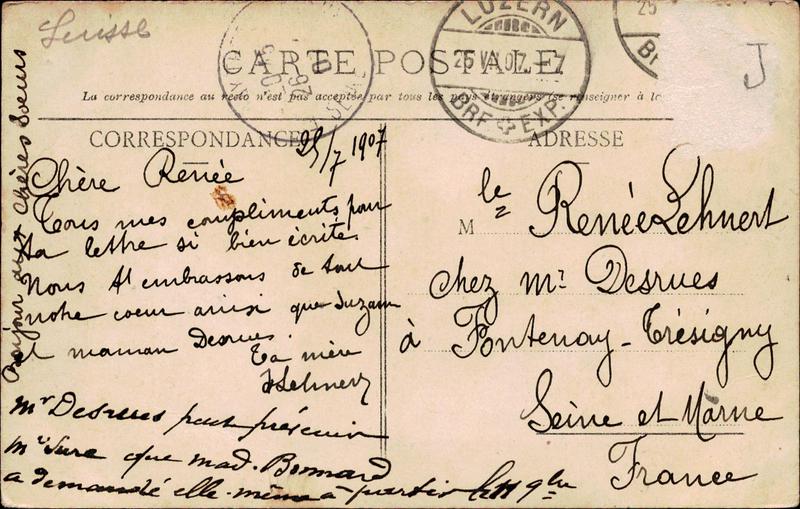 Suisse
CARTE POSTALE
La correspondance au recto n'est pas acceptée par tous les pays étrangers (se renseigner à la
LUZERN
25 VII 07 7
BRF EXP.
25
J
CORRESPONDANCE
25/7 1907
Chère Renée
Tous mes compliments pour
ta lettre si bien écrite.
Nous t'embrassons de tout
notre coeur ainsi que Suzanne
et maman Desrues
Ta mère
Lehnert
Bonjour aux chères Soeurs
Mr Desrues peut prévenir
que mad. Bonnard
a demandé elle-même à partir
ADRESSE
M lle Renée Lehnert
chez Mr Desrues
à Fontenay-Trésigny
Seine et Marne
France